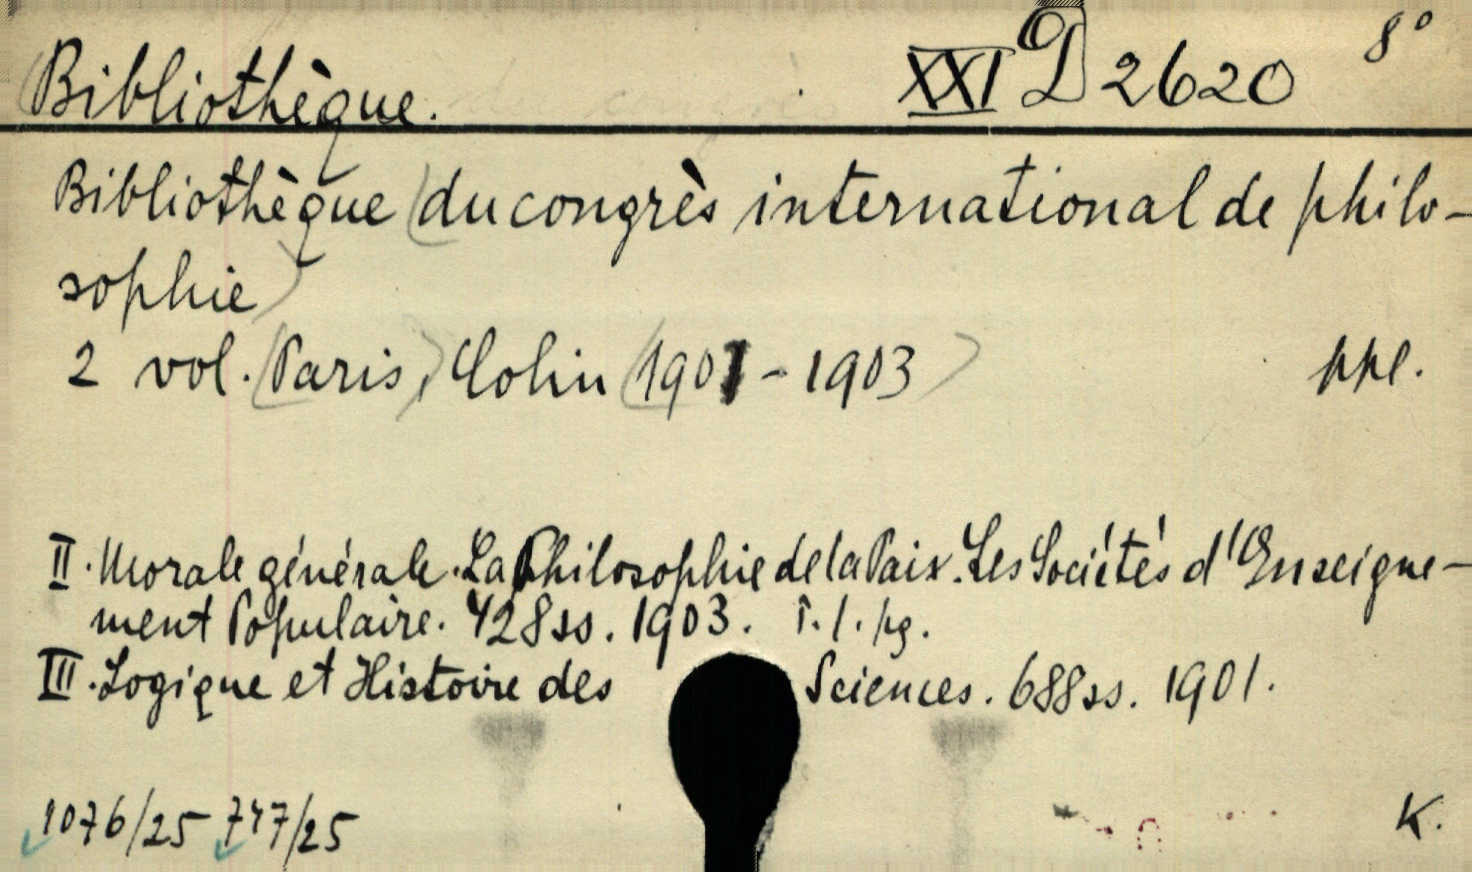 Bibliothèque. XXI D 2620 8°
Bibliothèque (du congrès international de philo-
sophie)
2 vol. (Paris), Colin (1901-1903) ppl.
II. Morale générale. La Philosophie de la Paix. Les Sociétés d'Enseigne-
ment Populaire. 428 ss. 1903. T. l. pg.
III. Logique et Histoire des Sciences. 688 ss. 1901.
1076/25 747/25 K.